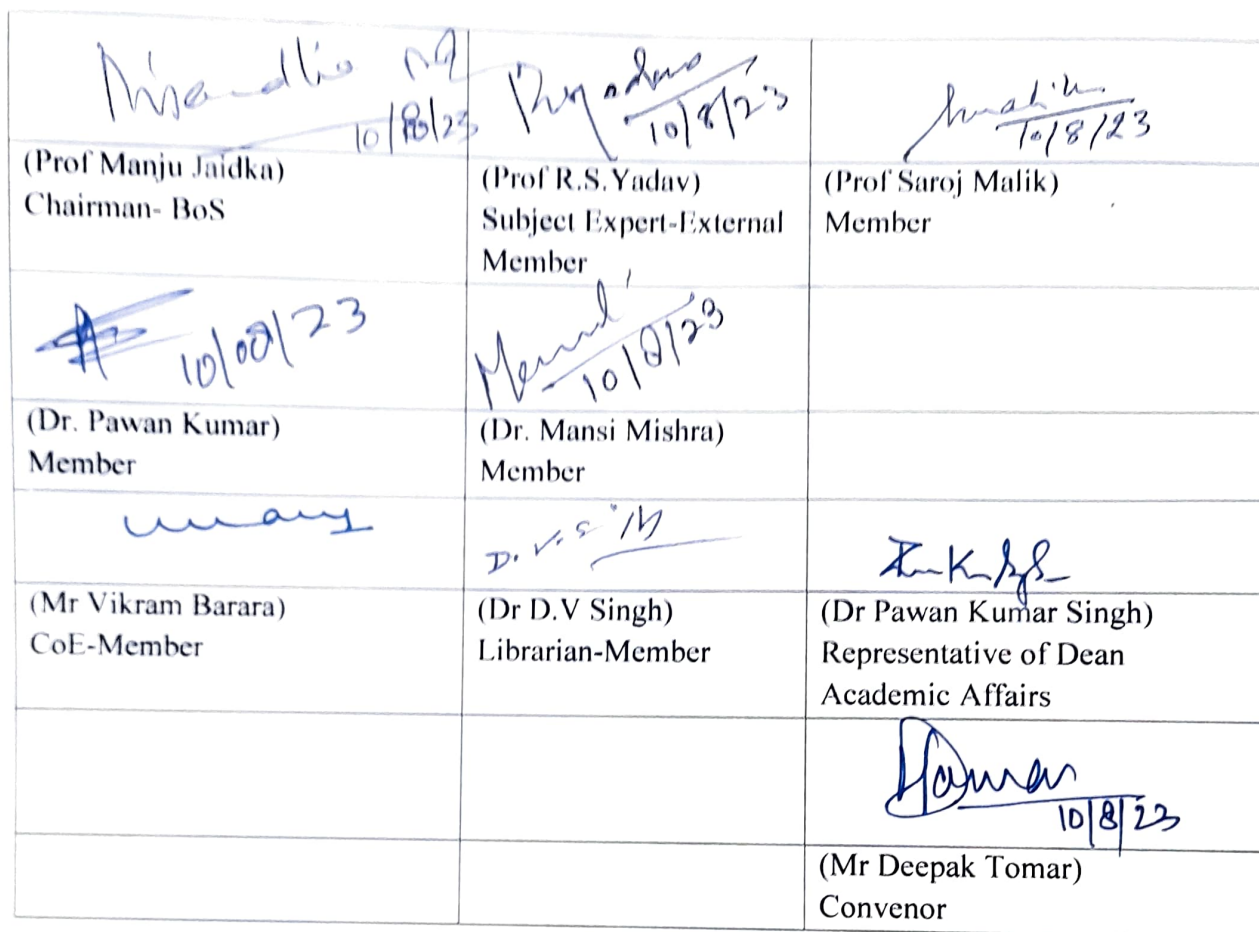 10/8/23
10/8/23
10/8/23
(Prof Manju Jaidka)
Chairman- BoS
(Prof R.S.Yadav)
Subject Expert-External
Member
(Prof Saroj Malik)
Member
10/08/23
10/8/23
(Dr. Pawan Kumar)
Member
(Dr. Mansi Mishra)
Member
(Mr Vikram Barara)
CoE-Member
(Dr D.V Singh)
Librarian-Member
(Dr Pawan Kumar Singh)
Representative of Dean
Academic Affairs
10/8/23
(Mr Deepak Tomar)
Convenor